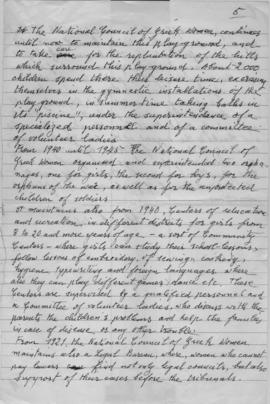 5
The National Council of Greek Women, continues
until now to maintain this playground, and
to take care for the replantation of the hills
which surround this playground. About 2.000
children spend there their leisure time, exercising
themselves in the gymnastic installations of the
playground, in summer time taking baths in
its "piscine", under the superintendance of a
specialized personnel and of a committee
of volunteer ladies.
From 1940 until 1945 The National Council of
Greek Women organised and superintended two orpha-
nages, one for girls, the second for boys, for the
orphans of the war, as well as for the unprotected
children of soldiers.
It maintains also from 1940, Centers of education
and recreation, in different districts, for girls from
8 to 20 and more years of age, a sort of Community
Centers - where girls can study their school-lessons,
follow lessons of embroidery, of sewing, cooking,
hygiene, typewriting and foreign languages, where
also they can play different games, dance etc. These
Centers are supervised by a qualified personnel and
a Committee of volunteer ladies, who discuss with the
parents the children's problems and help the family
in case of disease, or any other trouble.
From 1921, the National Council of Greek Women
maintains also a Legal Bureau, where, women who cannot
pay lawers find not only legal councils, but also
support of their cases before the tribunals.